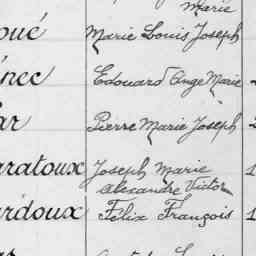 Marie
oué Marie Louis Joseph
énec Edouard Ange Marie
ar Pierre Marie Joseph
aratoux Joseph Marie
Alexandre Victor
ardoux Félix François